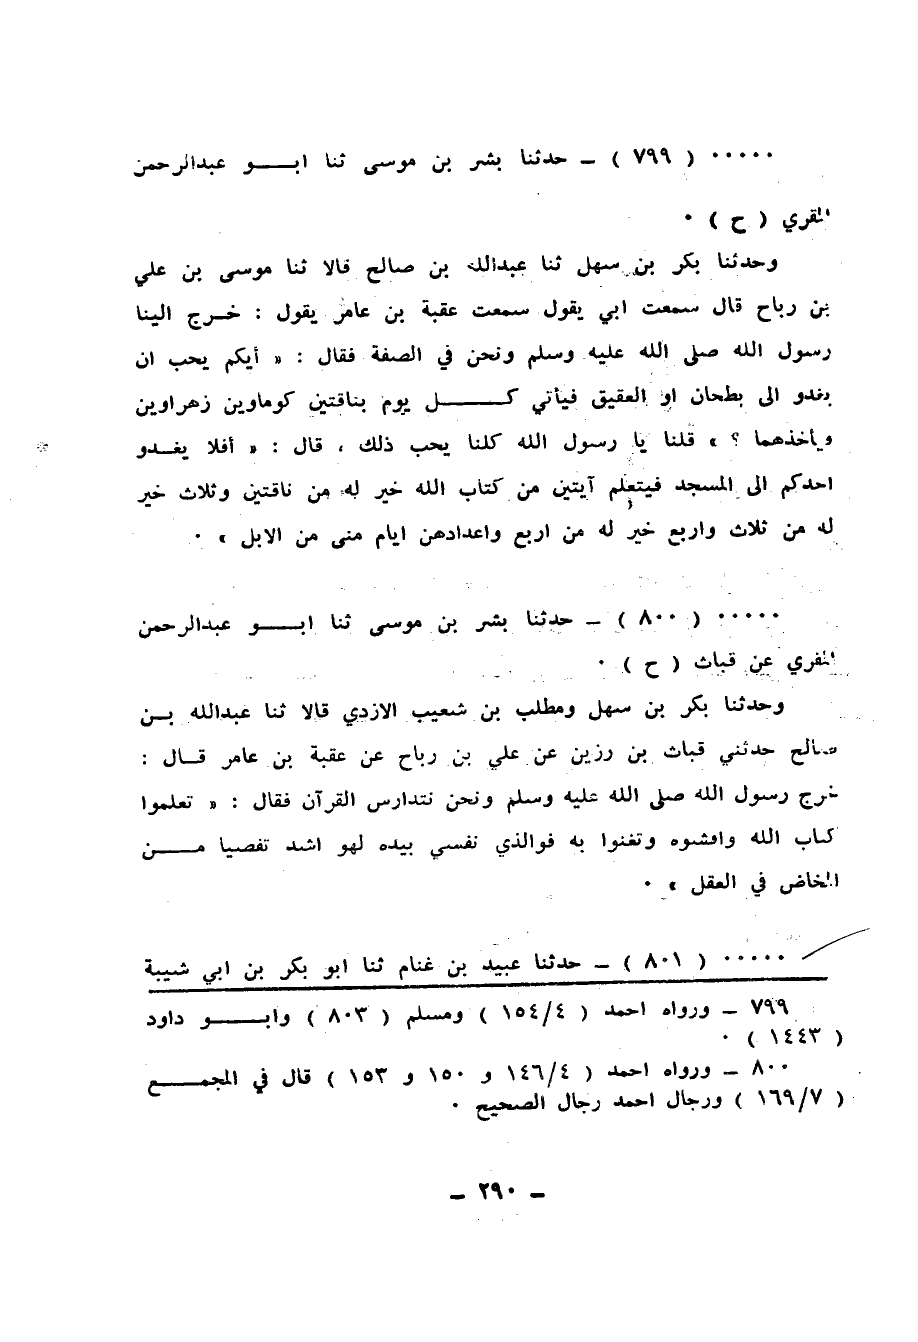 ..... ( ٧٩٩ ) ــ حدثنا بشر بن موسى ثنا ابـــو عبدالرحمن
المقري ( ح ) ٠
وحدثنا بكر بن سهل ثنا عبدالله بن صالح قالا ثنا موسى بن علي
بن رباح قال سمعت ابي يقول سمعت عقبة بن عامر يقول : خــرج الينا
رسول الله صلى الله عليه وسلم ونحن في الصفة فقال : « أيكم يحب ان
يغدو الى بطحان او العقيق فيأتي كــــــل يوم بناقتين كوماوين زهراوين
ويأخذهما ؟ » قلنا يا رسول الله كلنا يحب ذلك ، قال : « أفلا يغــدو
احدكم الى المسجد فيتعلم آيتين من كتاب الله خير له من ناقتين وثلاث خير
له من ثلاث واربع خير له من اربع واعدادهن ايام منى من الابل » ٠
..... ( ٨٠٠ ) ــ حدثنا بشر بن موسى ثنا ابـــو عبدالرحمن
المقري عن قباث ( ح ) ٠
وحدثنا بكر بن سهل ومطلب بن شعيب الازدي قالا ثنا عبدالله بــن
صالح حدثني قباث بن رزين عن علي بن رباح عن عقبة بن عامر قــال :
خرج رسول الله صلى الله عليه وسلم ونحن نتدارس القرآن فقال : « تعلموا
كتاب الله وافشوه وتغنوا به فوالذي نفسي بيده لهو اشد تفصيا مــــن
المخاض في العقل » ٠
..... ( ٨٠١ ) ــ حدثنا عبيد بن غنام ثنا ابو بكر بن ابي شيبة
٧٩٩ ــ ورواه احمد ( ١٥٤/٤ ) ومسلم ( ٨٠٣ ) وابـــــو داود
( ١٤٤٣ ) ٠
٨٠٠ ــ ورواه احمد ( ١٤٦/٤ و ١٥٠ و ١٥٣ ) قال في المجمـــع
( ١٦٩/٧ ) ورجال احمد رجال الصحيح ٠
ــ ٢٩٠ ــ